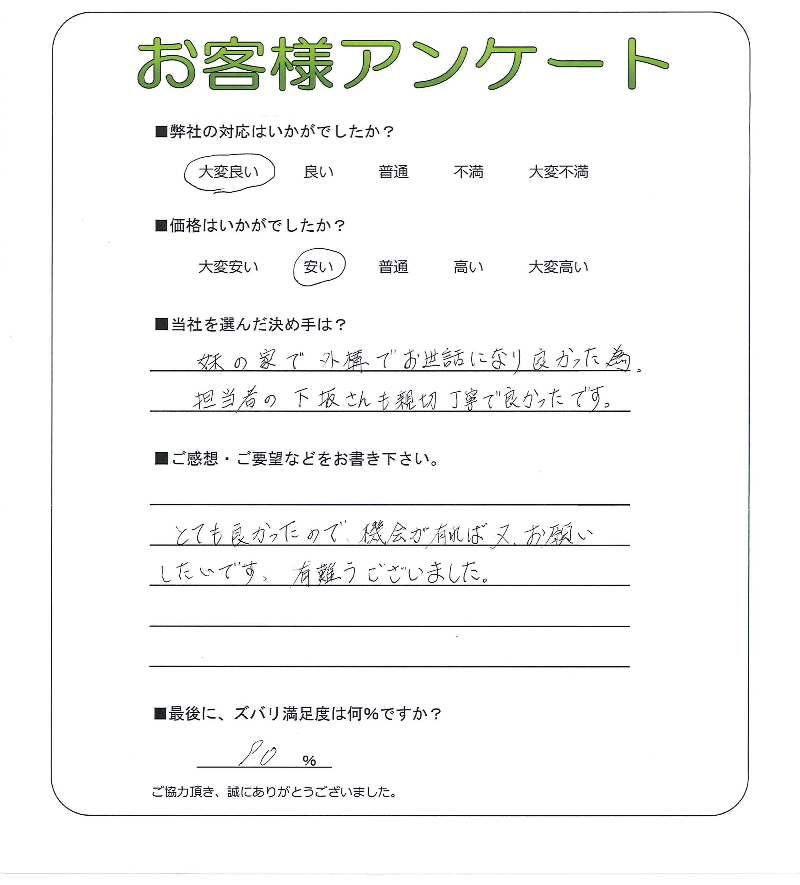 お客様アンケート
■弊社の対応はいかがでしたか？
大変良い 良い 普通 不満 大変不満
■価格はいかがでしたか？
大変安い 安い 普通 高い 大変高い
■当社を選んだ決め手は？
妹の家で外構でお世話になり良かった為。
担当者の下坂さんも親切丁寧で良かったです。
■ご感想・ご要望などをお書き下さい。
とても良かったので、機会が有れば又、お願い
したいです。有難うございました。
■最後に、ズバリ満足度は何％ですか？
90 %
ご協力頂き、誠にありがとうございました。